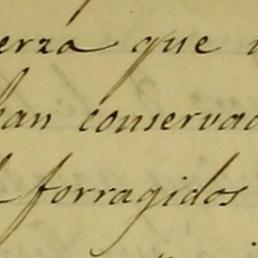 erza que
han conservad
forragidos